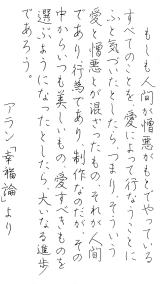 もしも人間が憎悪がもとでやっている
すべてのことを、愛によって行なうことに
ふと気づいたとしたら、つまり、そういう
愛と憎悪とが混ざったもの、それが人間
であり行為であり、制作なのだが、その
中からいつも美しいもの、愛すべきものを
選ぶようになったとしたら、大いなる進歩
であろう。
アラン「幸福論」より